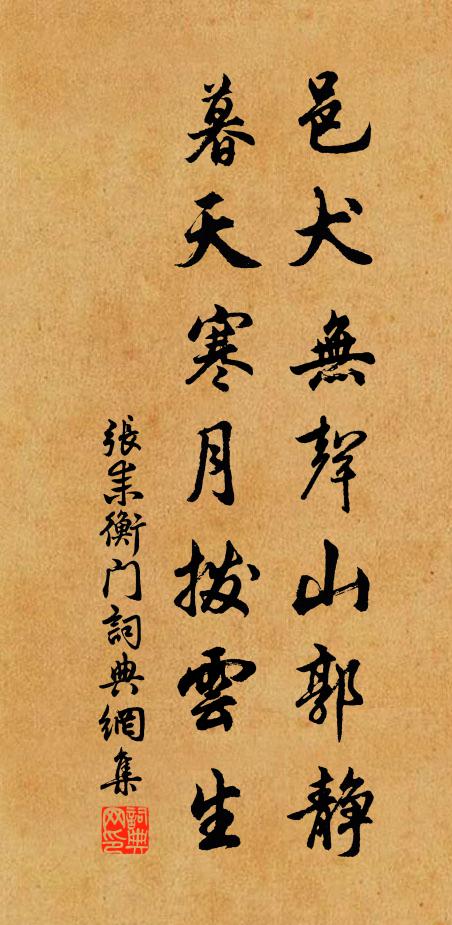 邑犬無聲山郭静
暮天寒月拨雲生
張耒衡门詞典網集
詞典网印